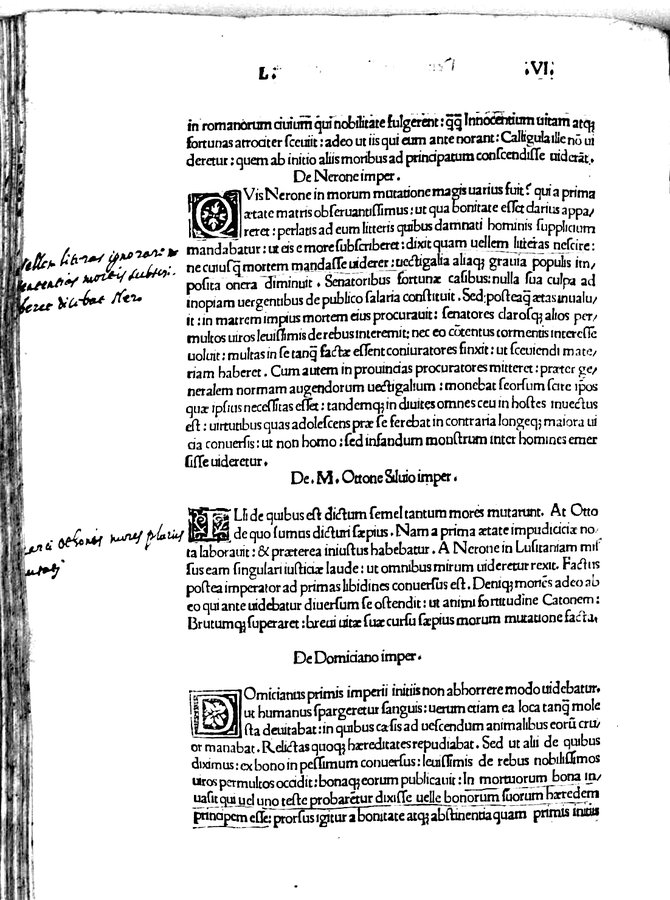 L. .VI.
in romanorum ciuiũ qui nobilitate fulgerent: q̃q̃ Innocentium uitam atq;
fortunas atrociter sceuiit: adeo ut iis qui eum ante norant: Calligula ille nõ ui
deretur: quem ab initio aliis moribus ad principatum conscendisse uiderãt.
De Nerone imper.
QVis Nerone in morum mutatione magis uarius fuit? qui a prima
ætate matris obseruantissimus: ut qua bonitate esset clarius appa/
reret: perlatis ad eum litteris quibus damnati hominis supplicium
mandabatur: ut eis e more subscriberet: dixit quam uellem litteras nescire:
ne cuiusq̃ mortem mandasse uiderer: uectigalia aliaq; grauia populis im/
posita onera diminuit. Senatoribus fortunæ casibus: nulla sua culpa ad
inopiam uergentibus de publico salaria constituit. Sed: posteaq̃ ætas inualu/
it: in matrem impius mortem eius procurauit: senatores clarosq; alios per/
multos uiros leuissimis de rebus interemit: nec eo cõtentus tormentis interesse
uoluit: multas in se tanq̃ factæ essent coniuratores finxit: ut sceuiendi mate/
riam haberet. Cum autem in prouincias procuratores mitteret: præter ge/
neralem normam augendorum uectigalium: monebat seorsum scire ip̃os
quæ ipsius necessitas esset: tandemq; in diuites omnes ceu in hostes inuectus
est: uirtutibus quas adolescens præ se ferebat in contraria longeq; maiora ui
cia conuersis: ut non homo: sed infandum monstrum inter homines emer
sisse uideretur.
uellem literas ignorare
sententias mortis subscri.
beret dicebat Nero
De. M. Ottone Siluio imper.
ILli de quibus est dictum semel tantum mores mutarunt. At Otto
de quo sumus dicturi sæpius. Nam a prima ætate impudiciciæ no/
ta laborauit: & præterea iniustus habebatur. A Nerone in Lusitaniam mis
sus eam singulari iusticiæ laude: ut omnibus mirum uideretur rexit. Factus
postea imperator ad primas libidines conuersus est. Deniq; mories adeo ab
eo qui ante uidebatur diuersum se ostendit: ut animi fortitudine Catonem:
Brutumq; superaret: breui uitæ suæ cursu sæpius morum mutatione facta.
othonis mores plurius
De Domiciano imper.
DOmicianus primis imperii initiis non abhorrere modo uidebatur.
ut humanus spargeretur sanguis: uerum etiam ea loca tanq̃ mole
sta deuitabat: in quibus cæsis ad uescendum animalibus eorũ cru/
or manabat. Relictas quoq; hæreditates repudiabat. Sed ut alii de quibus
diximus: ex bono in pessimum conuersus: leuissimis de rebus nobilissimos
uiros permultos occidit: bonaq; eorum publicauit: In mortuorum bona in/
uasit qui uel uno teste probarẽtur dixisse uelle bonorum suorum hæredem
principem esse: prorsus igitur a bonitate atq; abstinentia quam primis initiis